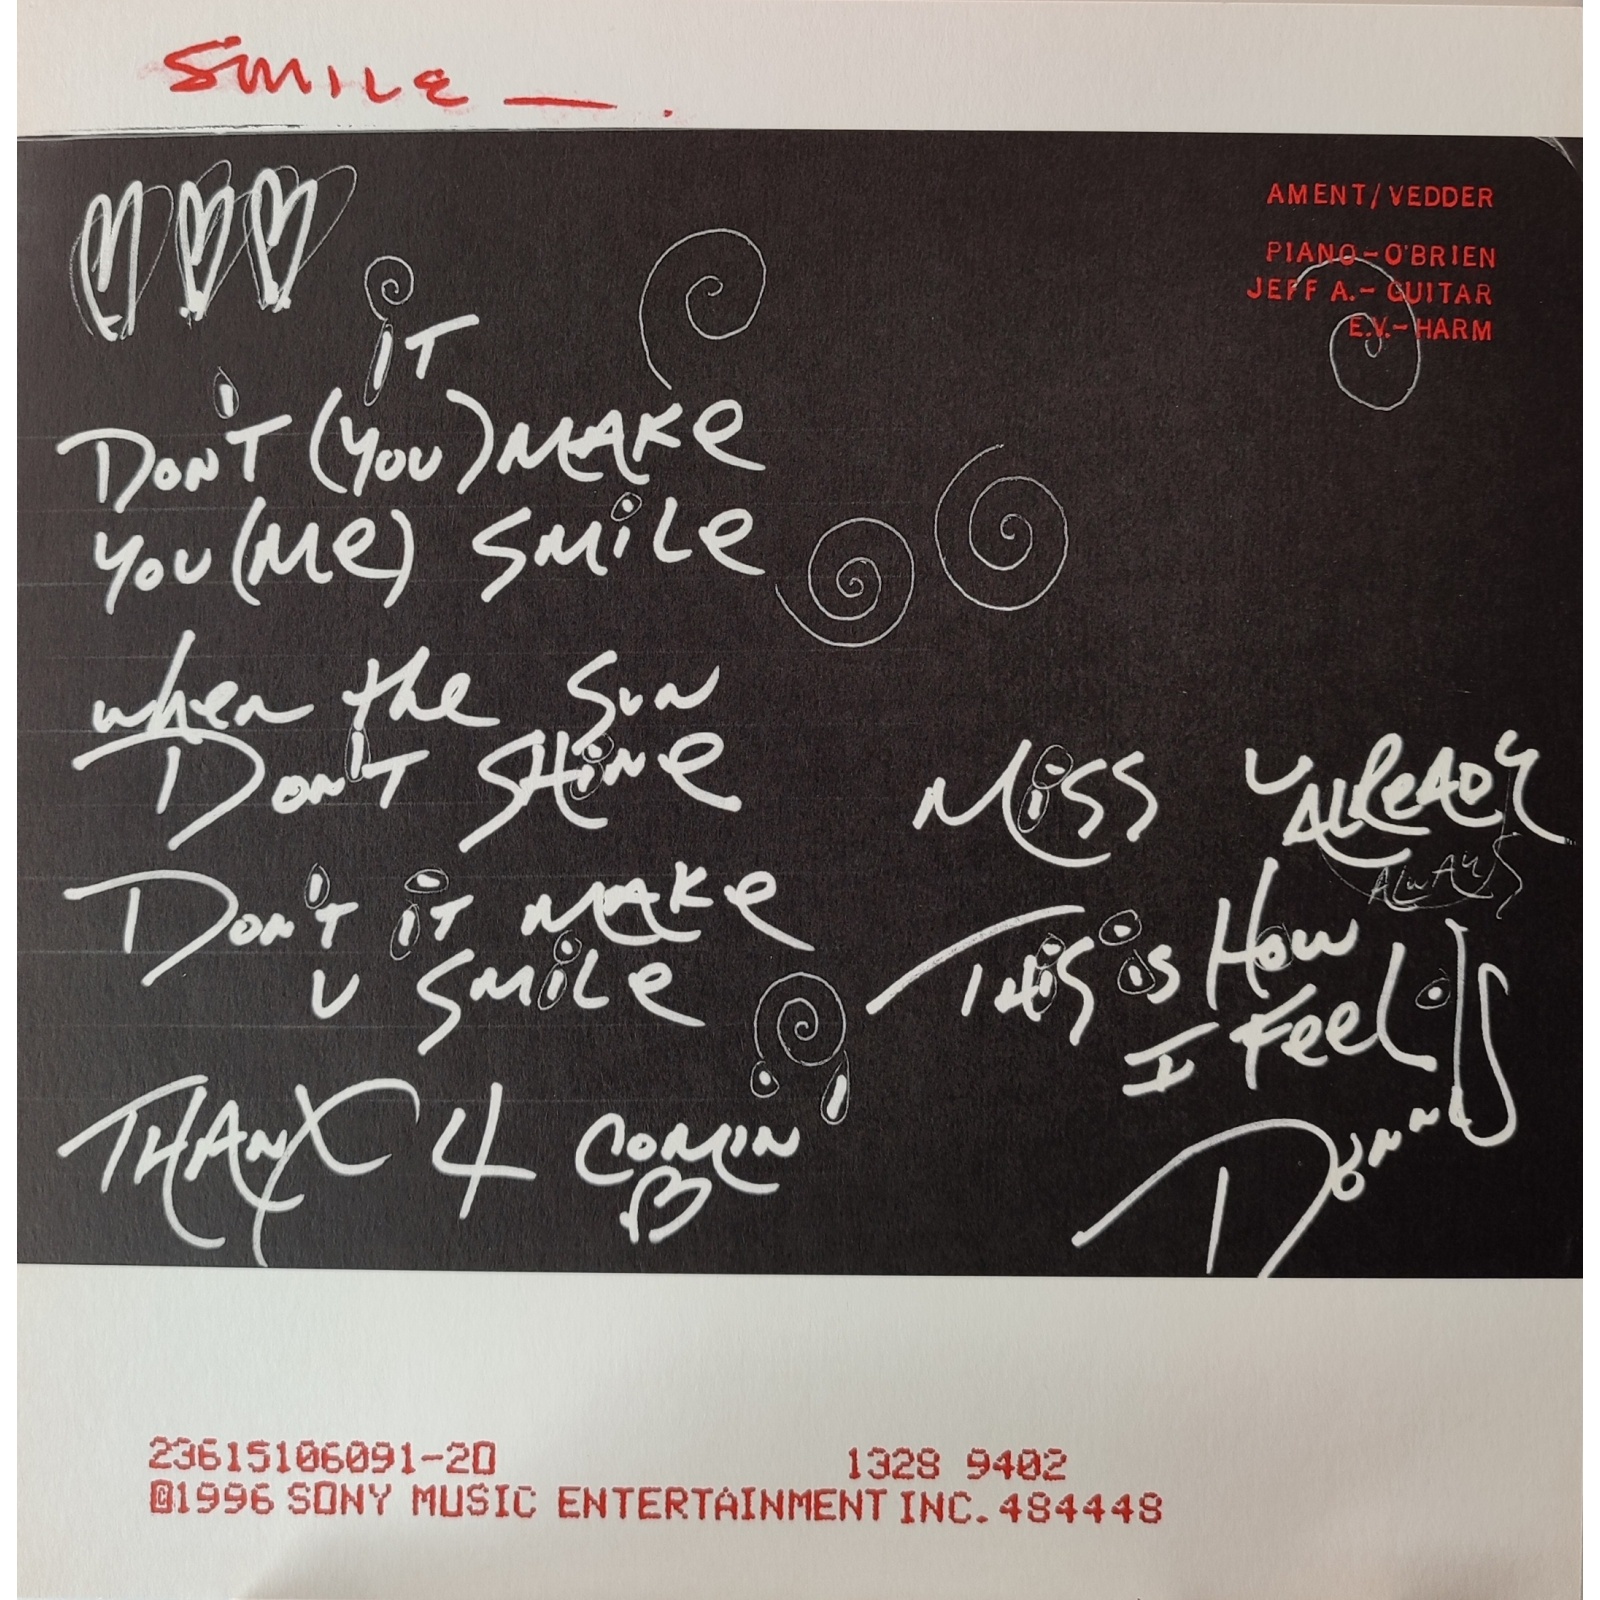 SMILE —.
AMENT/VEDDER
PIANO-O'BRIEN
JEFF A.- GUITAR
E.V.- HARM
iT
DON'T (YOU) MAKE
YOU (Me) SMiLe
when the SuN
DON'T SHiNe
DON'T iT MAKe
U SMiLe
THANX 4 COMIN'
MiSS U ALReADY
ALWAYS
THiS iS How
I FeeL
DONN
23615106091-2D
1328 9402
©1996 SONY MUSIC ENTERTAINMENT INC. 484448